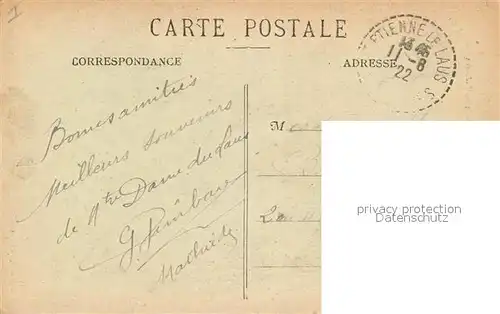 1
CARTE POSTALE
CORRESPONDANCE
ADRESSE
ETIENNE LE LAUS
11-8
22
Bonnes amitiés
Meilleurs souvenirs
de Ntre Dame du Laus
M
20
privacy protection
Datenschutz